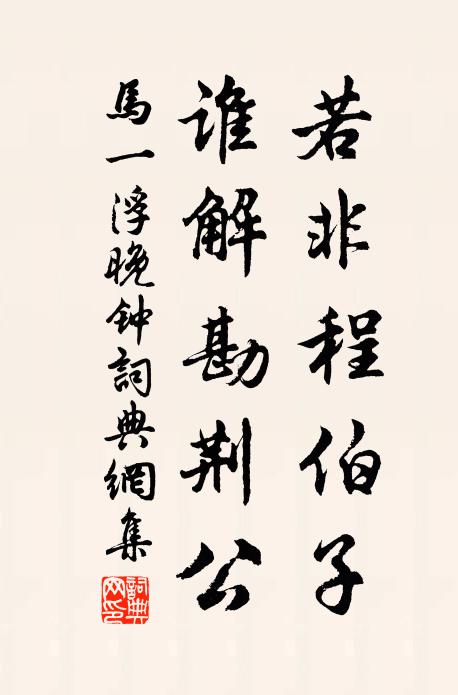 若非程伯子
誰解勘荆公
馬一浮晚钟詞典網集
詞典网印